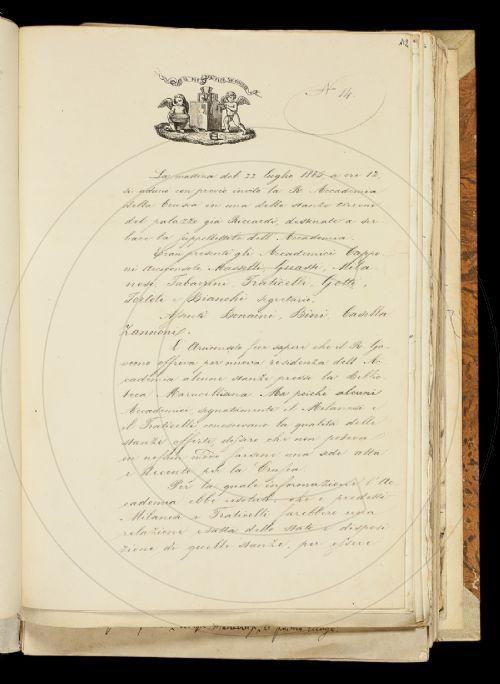 N.° 14.
La mattina del 22 luglio 1865, a ore 12,
si adunò con previo invito la R. Accademia
della Crusca in una delle stanze terrene
del palazzo già Riccardi, destinate a ser
bare la suppellettile dell'Accademia.
Eran presenti gli Accademici Cappo
ni Arciconsolo Guasti, Mila
nesi, Tabarrini, Fraticelli, Gotti,
Tortoli e Bianchi Segretario.
Assenti Bonaini, Bini, Casella
Zannoni.
L'Arciconsolo fece sapere che il R. Go
verno offriva per nuova residenza dell'Ac
cademia alcune stanze presso la Biblio
teca Marucelliana. Ma poichè alcuni
Accademici, segnatamente il Milanesi e
il Fraticelli conoscevano la qualità delle
stanze offerte, dissero che non poteva
in nessun modo farsene una sede atta
e decente per la Crusca.
Per la quale informazione l'Ac
cademia ebbe risoluto che i predetti
Milanesi e Fraticelli farebbero una
relazione esatta dello stato e disposi
zione di quelle stanze, per essere